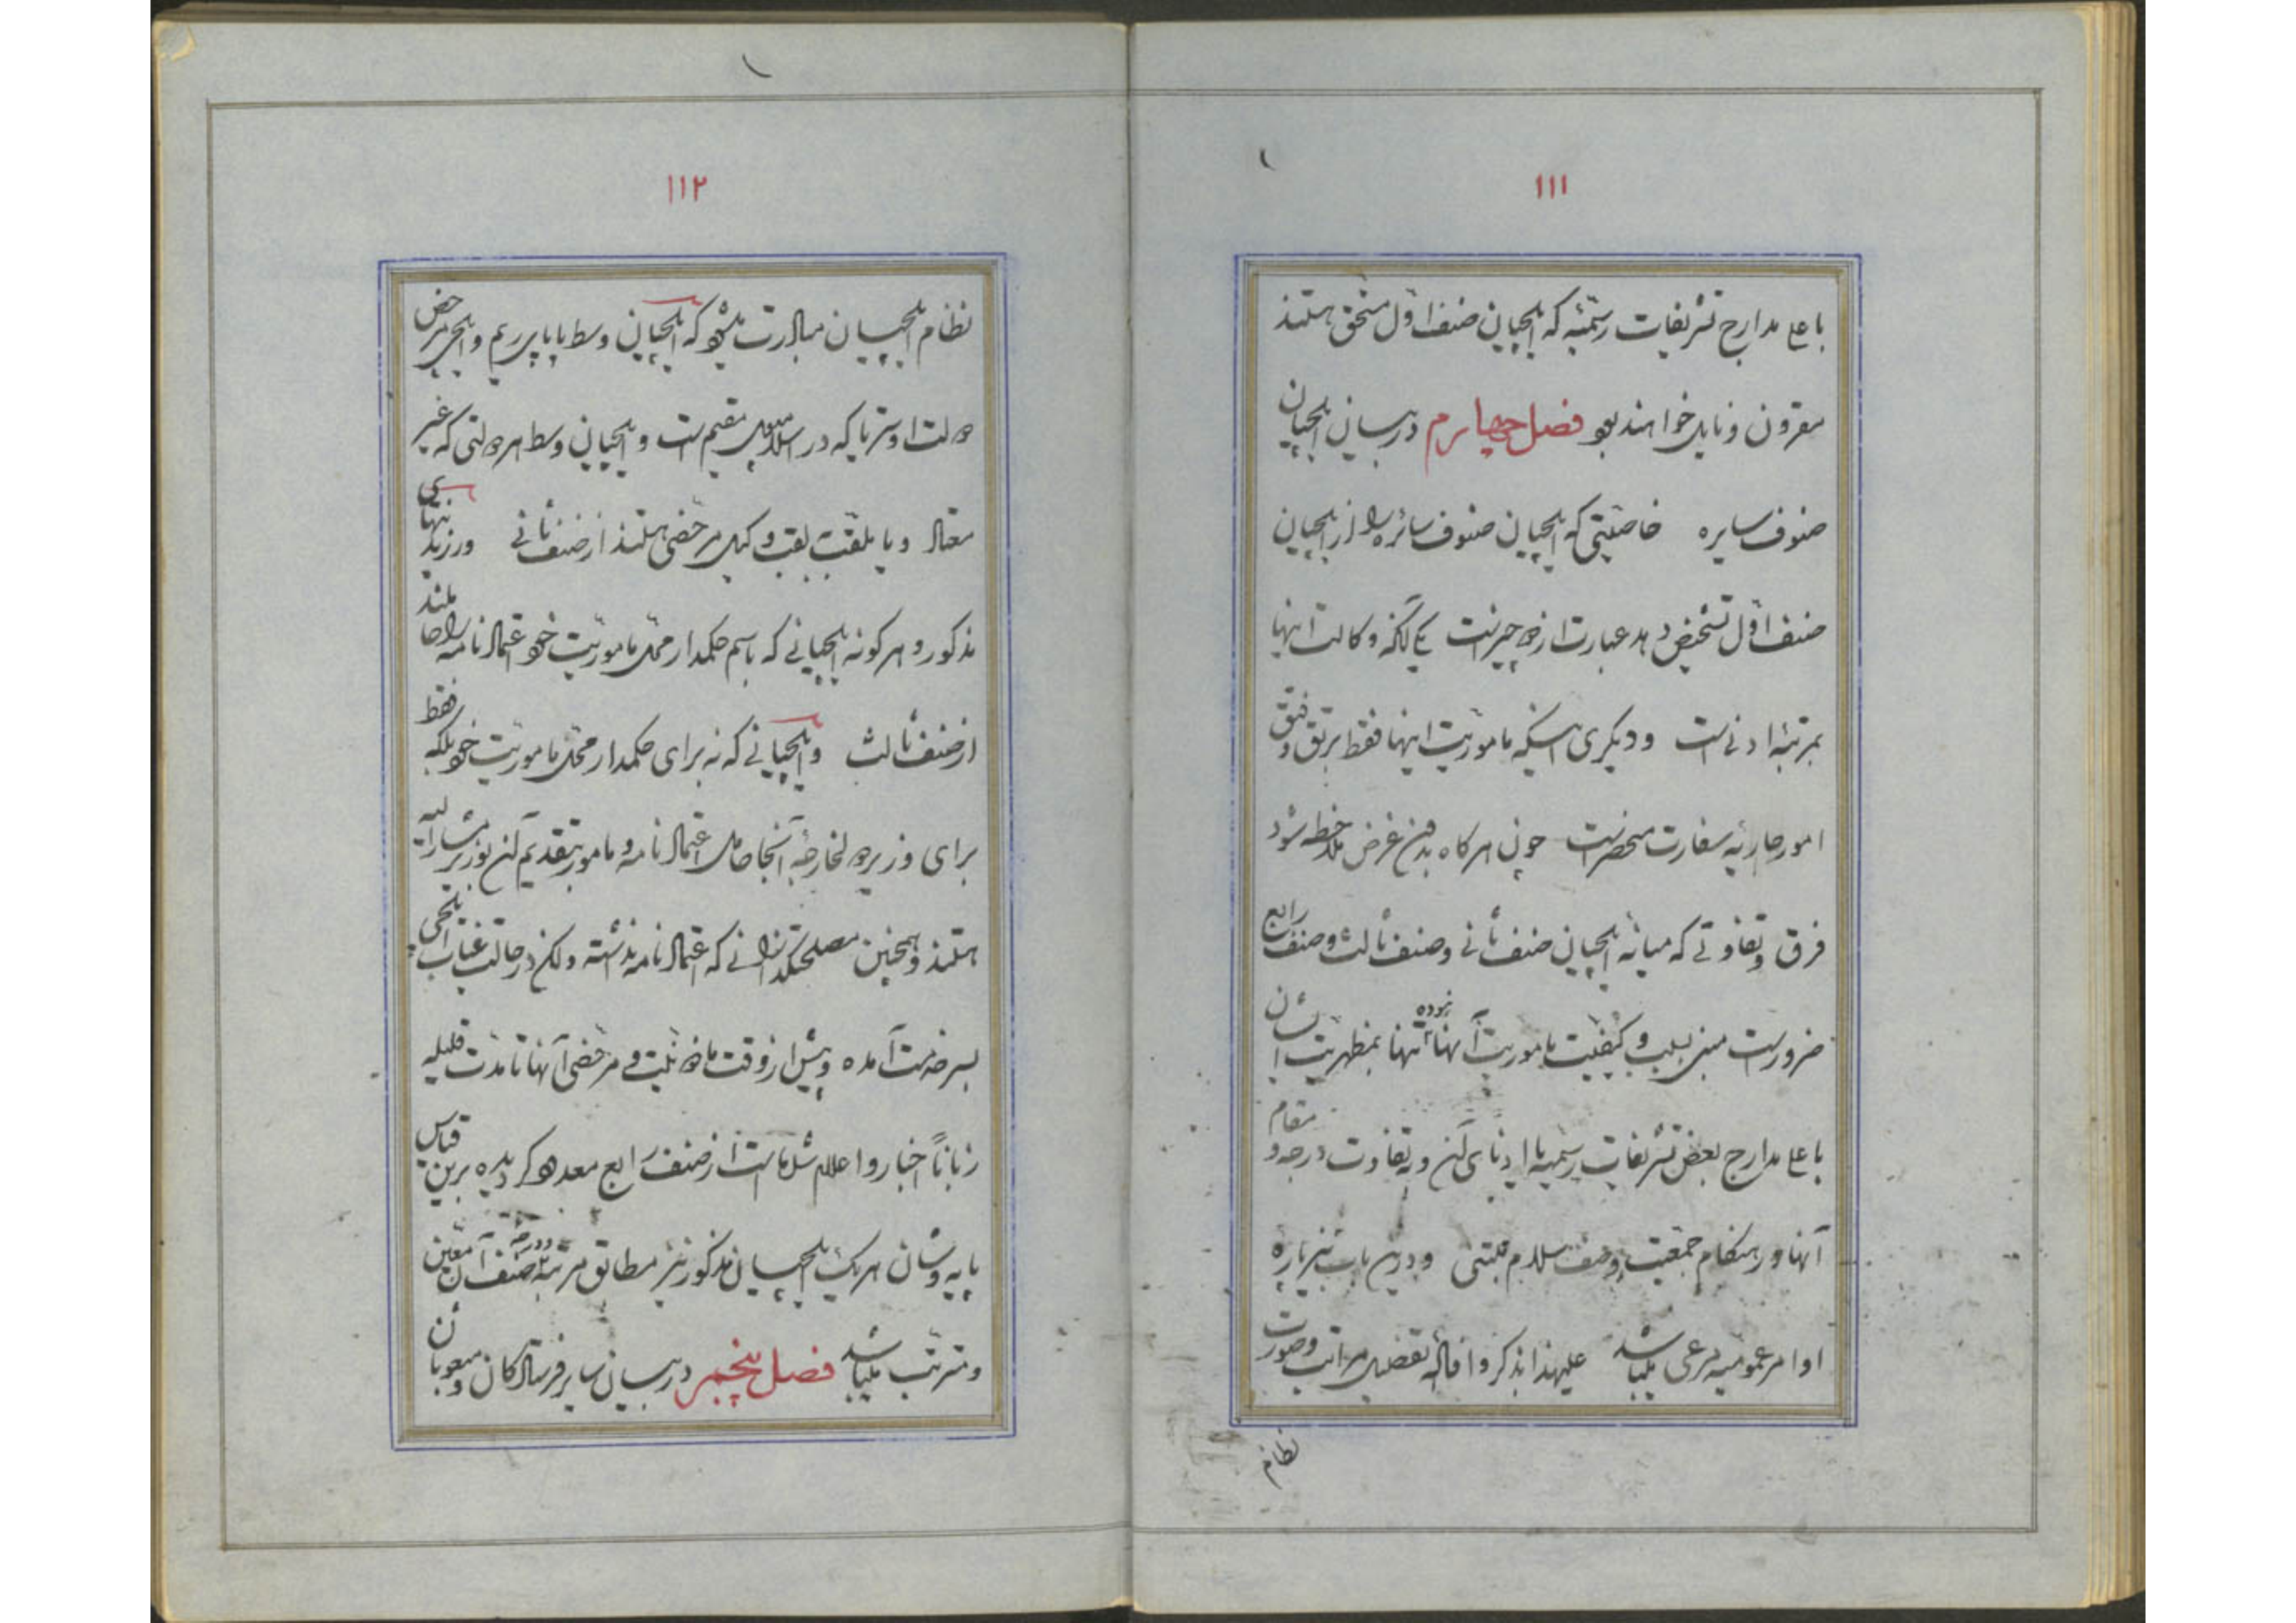 ۱۱۱
باعلی مدارج تشریفات رسمیّه که ایلچیان صنف اوّل مستحق هستند
مقرون و نایل خواهند بود فصل چهارم در بیان ایلچیان
صنوف سایره خاصیّتی که ایلچیان صنوف سائره را از ایلچیان
صنف اوّل تشخیص دهد عبارت از دو چیزست یکی آنکه وکالت اینها
بمرتبهٔ ادنی است و دیگری اینکه مأموریّت اینها فقط برتق و فتق
امور جاریهٔ سفارت منحصرست چون هر کاه بدین غرض ملاحظه شود
فرق و تفاوتی که میانهٔ ایلچیان صنف ثانی و صنف ثالث و صنف رابع
ضرورست مبنی بسبب و کیفیّت ماموریت آنها نبوده تنها بمظهریت ایشان
باعلی مدارج بعض تشریفات رسمیه یا ادنای آن و به تفاوت درجه و مقام
آنها در هنکام جمعیت وصف سلام مبتنی و درین باب نیز پاره
اوامر عمومیه مرعی میباشد علیهذا بذکر و افادهٔ تفصیل مراتب و صورت
نظام
۱۱۲
نظام ایلچیان مبادرت میشود که ایلچیان وسط پاپای ریم و ایلچی مرخص
دولت اوستریا که در اسلامبول مقیم ست و ایلچیان وسط هر دولتی که غیر
معتاد و یا بلقب وکیل مرخص هستند از صنف ثانی و رزیدنتهای
مذکور و هر کونه ایلچیانی که باسم حکمدار محلّ ماموریّت خود اعتمادنامه را حاملند
از صنف ثالث و ایلچیانی که نه برای حکمدار محلّ ماموریّت خود بلکه فقط
برای وزیر دول خارجهٔ آنجا حامل اعتمادنامه و مامور بتقدیم آن بوزیر مشارالیه
هستند و همچنین مصلحتکذارانی که اعتمادنامه نداشته ولکن در حالت غیاب ایلچی
بسر خدمت آمده و پیش از وقت ماذونیّت و مرخصی آنها تا مدّت قلیله
زباناً اخبار و اعلام شده است از صنف رابع معدود کردیده برین قیاس
پایه و شان هر یک ایلچیان مذکور نیز مطابق مرتبه و درجهٔ صنف آن معیّن
و مترتّب میباشد فصل پنجم در بیان سایر فرستادکان و مبعوثان